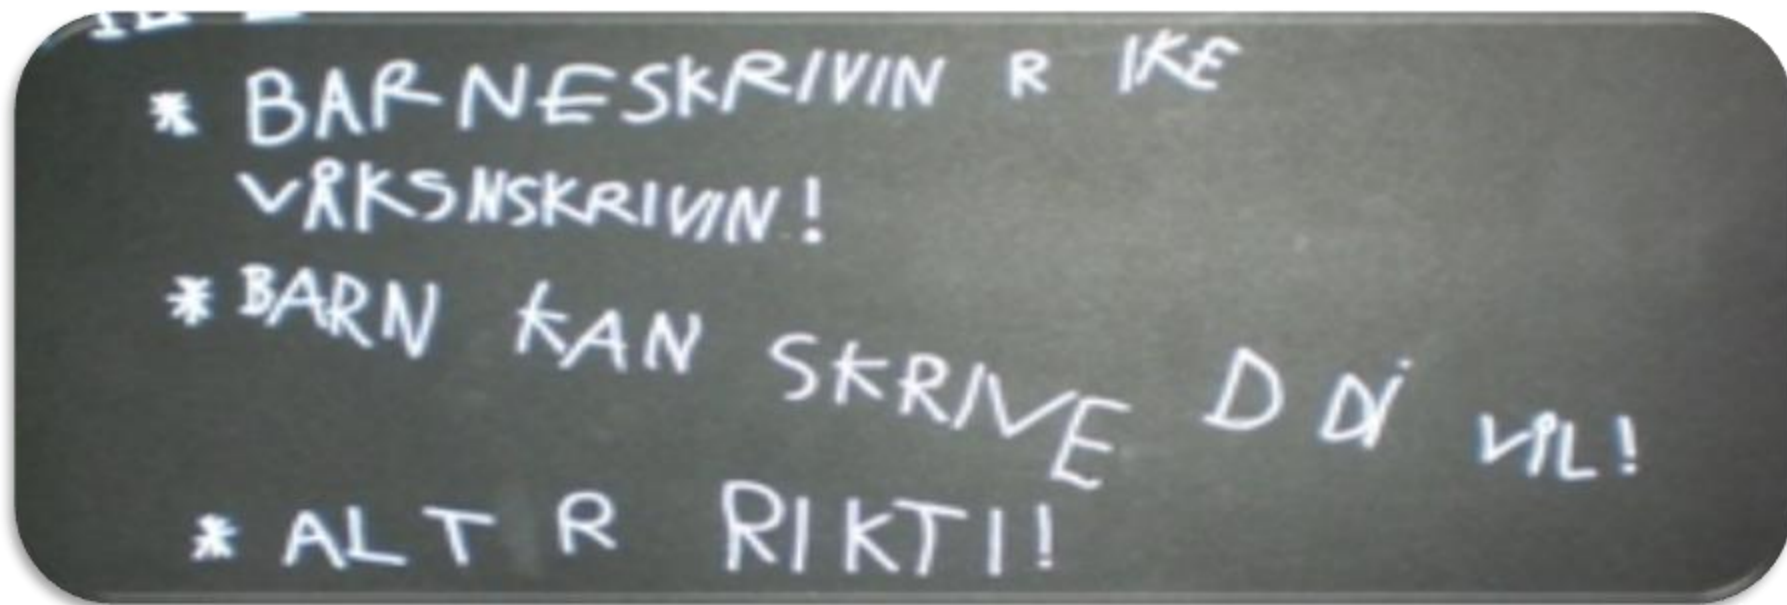 * BARNESKRIVIN R IKE
VÅKSNSKRIVIN!
* BARN KAN SKRIVE D DI VIL!
* ALT R RIKTI!